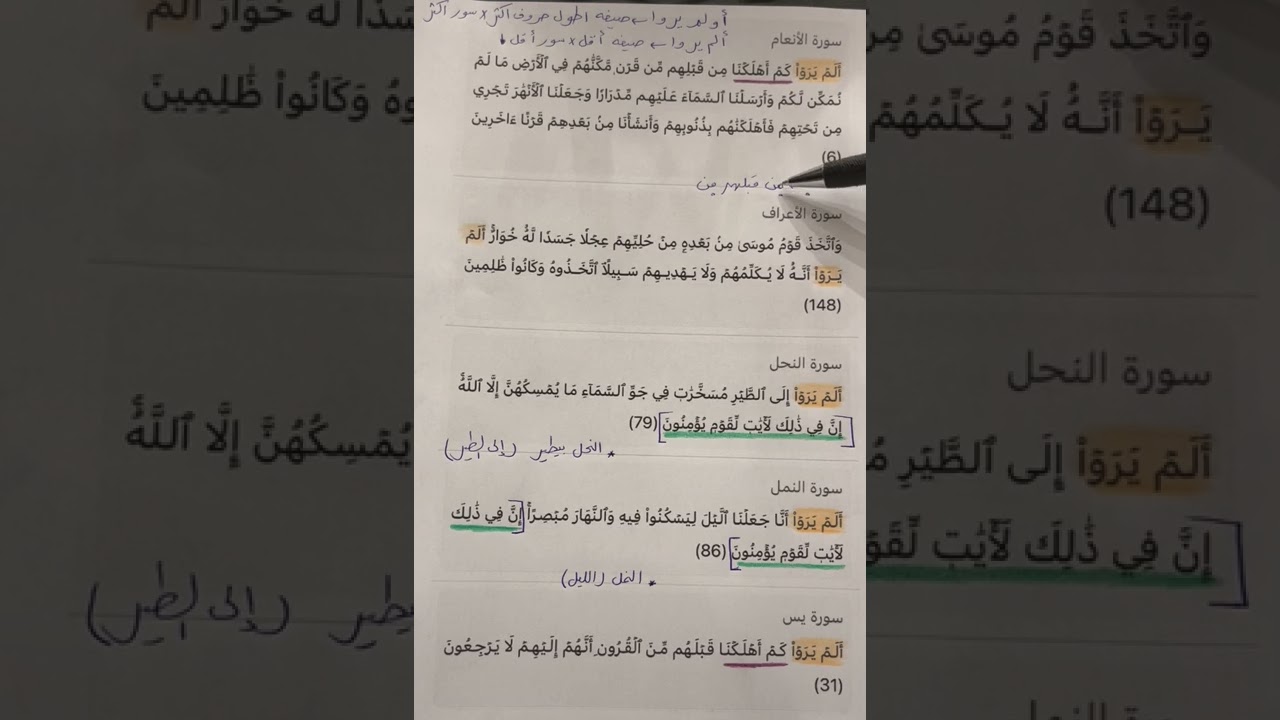 أولم يروا ← صيغه اطول حروف اكثر × سور اكثر
ألم يروا ← صيغه أقل × سور أقل
سورة الأنعام
أَلَمۡ يَرَوۡاْ كَمۡ أَهۡلَكۡنَا مِن قَبۡلِهِم مِّن قَرۡنٖ مَّكَّنَّٰهُمۡ فِي ٱلۡأَرۡضِ مَا لَمۡ
نُمَكِّن لَّكُمۡ وَأَرۡسَلۡنَا ٱلسَّمَآءَ عَلَيۡهِم مِّدۡرَارٗا وَجَعَلۡنَا ٱلۡأَنۡهَٰرَ تَجۡرِي
مِن تَحۡتِهِمۡ فَأَهۡلَكۡنَٰهُم بِذُنُوبِهِمۡ وَأَنشَأۡنَا مِنۢ بَعۡدِهِمۡ قَرۡنًا ءَاخَرِينَ
(6)
من قبلهم من
سورة الأعراف
وَٱتَّخَذَ قَوۡمُ مُوسَىٰ مِنۢ بَعۡدِهِۦ مِنۡ حُلِيِّهِمۡ عِجۡلٗا جَسَدٗا لَّهُۥ خُوَارٌۚ أَلَمۡ
يَرَوۡاْ أَنَّهُۥ لَا يُكَلِّمُهُمۡ وَلَا يَهۡدِيهِمۡ سَبِيلًاۘ ٱتَّخَذُوهُ وَكَانُواْ ظَٰلِمِينَ
(148)
سورة النحل
أَلَمۡ يَرَوۡاْ إِلَى ٱلطَّيۡرِ مُسَخَّرَٰتٖ فِي جَوِّ ٱلسَّمَآءِ مَا يُمۡسِكُهُنَّ إِلَّا ٱللَّهُۚ
إِنَّ فِي ذَٰلِكَ لَأٓيَٰتٖ لِّقَوۡمٖ يُؤۡمِنُونَ (79)
* النحل بيطير (إلى الطير)
سورة النمل
أَلَمۡ يَرَوۡاْ أَنَّا جَعَلۡنَا ٱلَّيۡلَ لِيَسۡكُنُواْ فِيهِ وَٱلنَّهَارَ مُبۡصِرًاۚ إِنَّ فِي ذَٰلِكَ
لَأٓيَٰتٖ لِّقَوۡمٖ يُؤۡمِنُونَ (86)
* النمل (الليل)
سورة يس
أَلَمۡ يَرَوۡاْ كَمۡ أَهۡلَكۡنَا قَبۡلَهُم مِّنَ ٱلۡقُرُونِ أَنَّهُمۡ إِلَيۡهِمۡ لَا يَرۡجِعُونَ
(31)